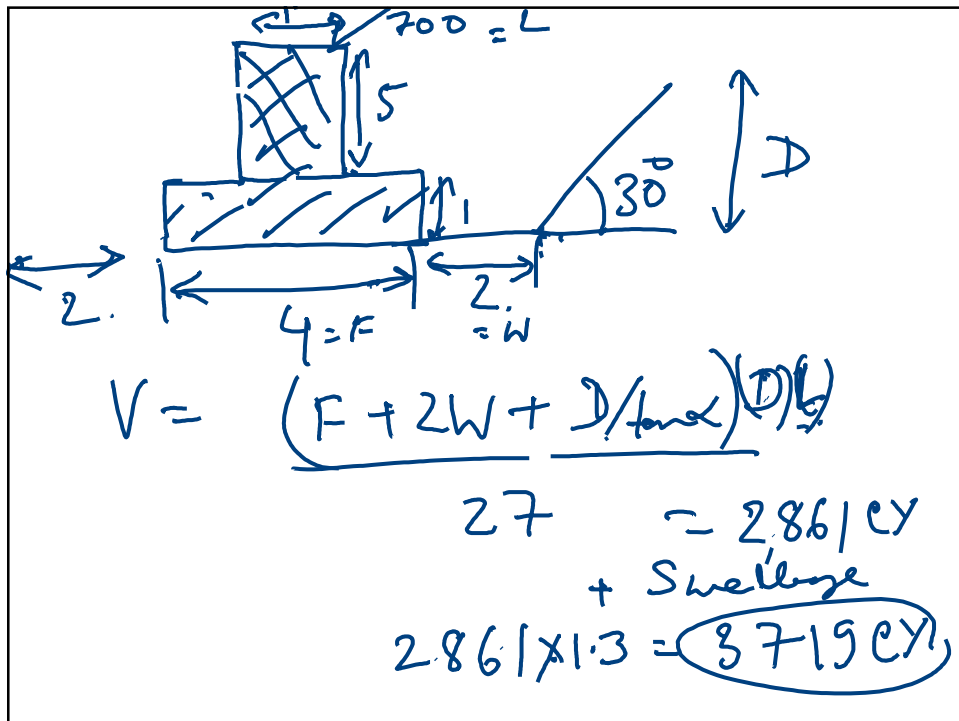 1 700 = L
5
D
30°
1
2.
4 = F
2.
= W
V = (F + 2W + D/tanα)(D)(L)
27 = 2,861 CY
+ Swellage
2,861 X 1.3 = 3719 CY